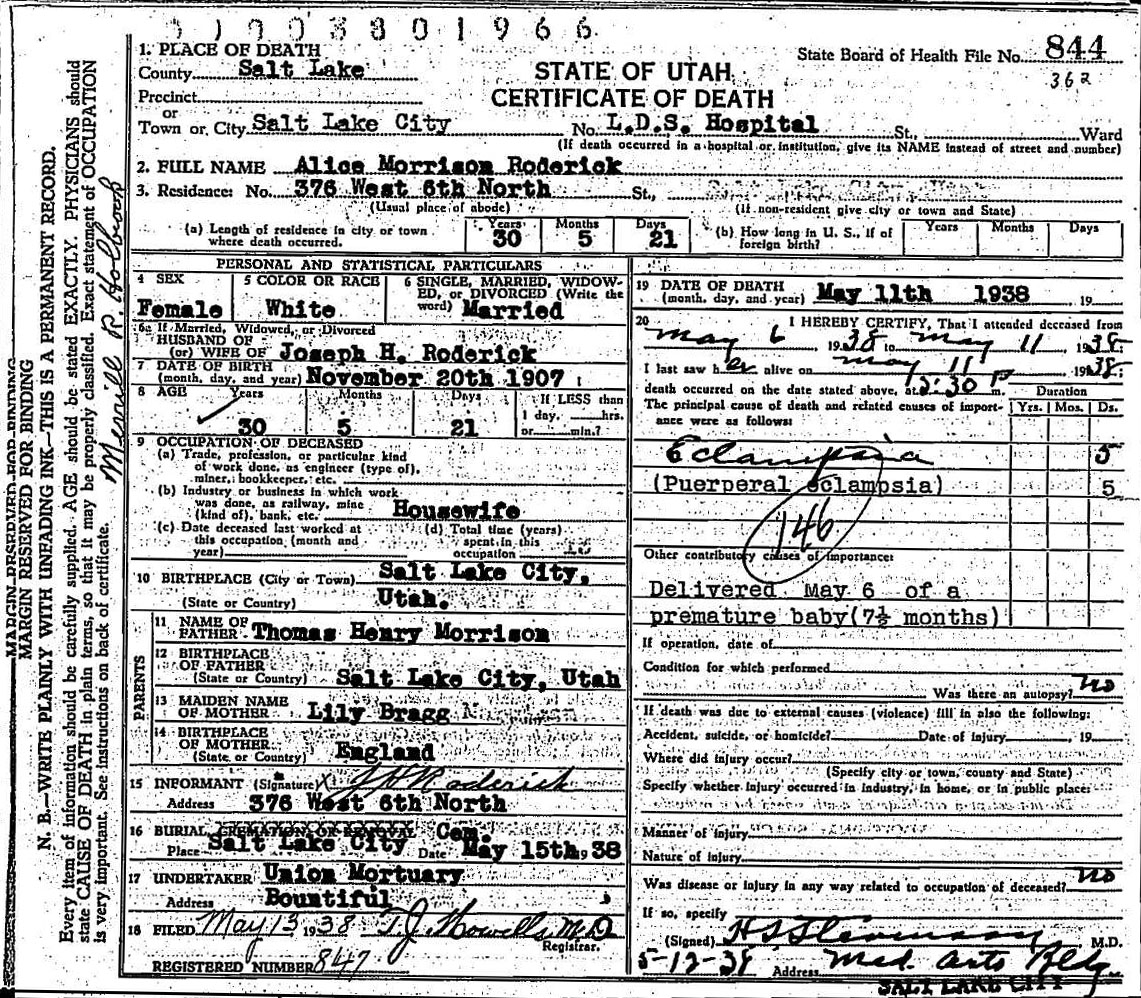 1003801966
1. PLACE OF DEATH
State Board of Health File No. 844
362
County Salt Lake
STATE OF UTAH
CERTIFICATE OF DEATH
Precinct
or
Town or City Salt Lake City No. L.D.S. Hospital St., Ward
(If death occurred in a hospital or institution, give its NAME instead of street and number)
2. FULL NAME Alice Morrison Roderick
3. Residence: No. 376 West 6th North St.,
(Usual place of abode) (If non-resident give city or town and State)
(a) Length of residence in city or town where death occurred. Years 30 Months 5 Days 21
(b) How long in U. S., if of foreign birth? Years Months Days
PERSONAL AND STATISTICAL PARTICULARS
4 SEX Female
5 COLOR OR RACE White
6 SINGLE, MARRIED, WIDOWED, or DIVORCED (Write the word) Married
6a If Married, Widowed, or Divorced
HUSBAND OF
(or) WIFE OF Joseph H. Roderick
7 DATE OF BIRTH
(month, day, and year) November 20th 1907
8 AGE Years 30 Months 5 Days 21
If LESS than
1 day, hrs.
or min.?
9 OCCUPATION OF DECEASED
(a) Trade, profession, or particular kind
of work done, as engineer (type of),
miner, bookkeeper, etc.
(b) Industry or business in which work
was done, as railway, mine
(kind of), bank, etc. Housewife
(c) Date deceased last worked at
this occupation (month and
year)
(d) Total time (years)
spent in this
occupation
10 BIRTHPLACE (City or Town) Salt Lake City,
(State or Country) Utah.
PARENTS
11 NAME OF
FATHER Thomas Henry Morrison
12 BIRTHPLACE
OF FATHER
(State or Country) Salt Lake City, Utah
13 MAIDEN NAME
OF MOTHER Lily Bragg
14 BIRTHPLACE
OF MOTHER
(State or Country) England
15 INFORMANT (Signature) X J H Roderick
Address 376 West 6th North
16 BURIAL, CREMATION, OR REMOVAL Cem.
Place Salt Lake City Date May 15th 1938
17 UNDERTAKER Union Mortuary
Address Bountiful
18 FILED May 13 1938 T.J. Howells, M.D.
Registrar.
REGISTERED NUMBER 847
19 DATE OF DEATH
(month, day, and year) May 11th 1938 19
20 I HEREBY CERTIFY, That I attended deceased from
May 6 1938 to May 11 1938
I last saw her alive on May 11 1938
death occurred on the date stated above, at 12:30 P m.
The principal cause of death and related causes of importance were as follows:
Duration
Yrs. Mos. Ds.
Eclampsia 5
(Puerperal eclampsia) 5
146
Other contributory causes of importance:
Delivered May 6 of a
premature baby(7½ months)
If operation, date of
Condition for which performed
Was there an autopsy? no
If death was due to external causes (violence) fill in also the following:
Accident, suicide, or homicide? Date of injury 19
Where did injury occur?
(Specify city or town, county and State)
Specify whether injury occurred in industry, in home, or in public place:
Manner of injury
Nature of injury
Was disease or injury in any way related to occupation of deceased? no
If so, specify
(Signed) H S Stevenson M.D.
5-12-38 Address Med. Arts Bldg
SALT LAKE CITY
MARGIN RESERVED FOR BINDING
MARGIN RESERVED FOR BINDING
N. B.—WRITE PLAINLY WITH UNFADING INK—THIS IS A PERMANENT RECORD.
Every item of information should be carefully supplied. AGE should be stated EXACTLY. PHYSICIANS should
state CAUSE OF DEATH in plain terms, so that it may be properly classified. Exact statement of OCCUPATION
is very important. See instructions on back of certificate.
Merrill R. Holbrook